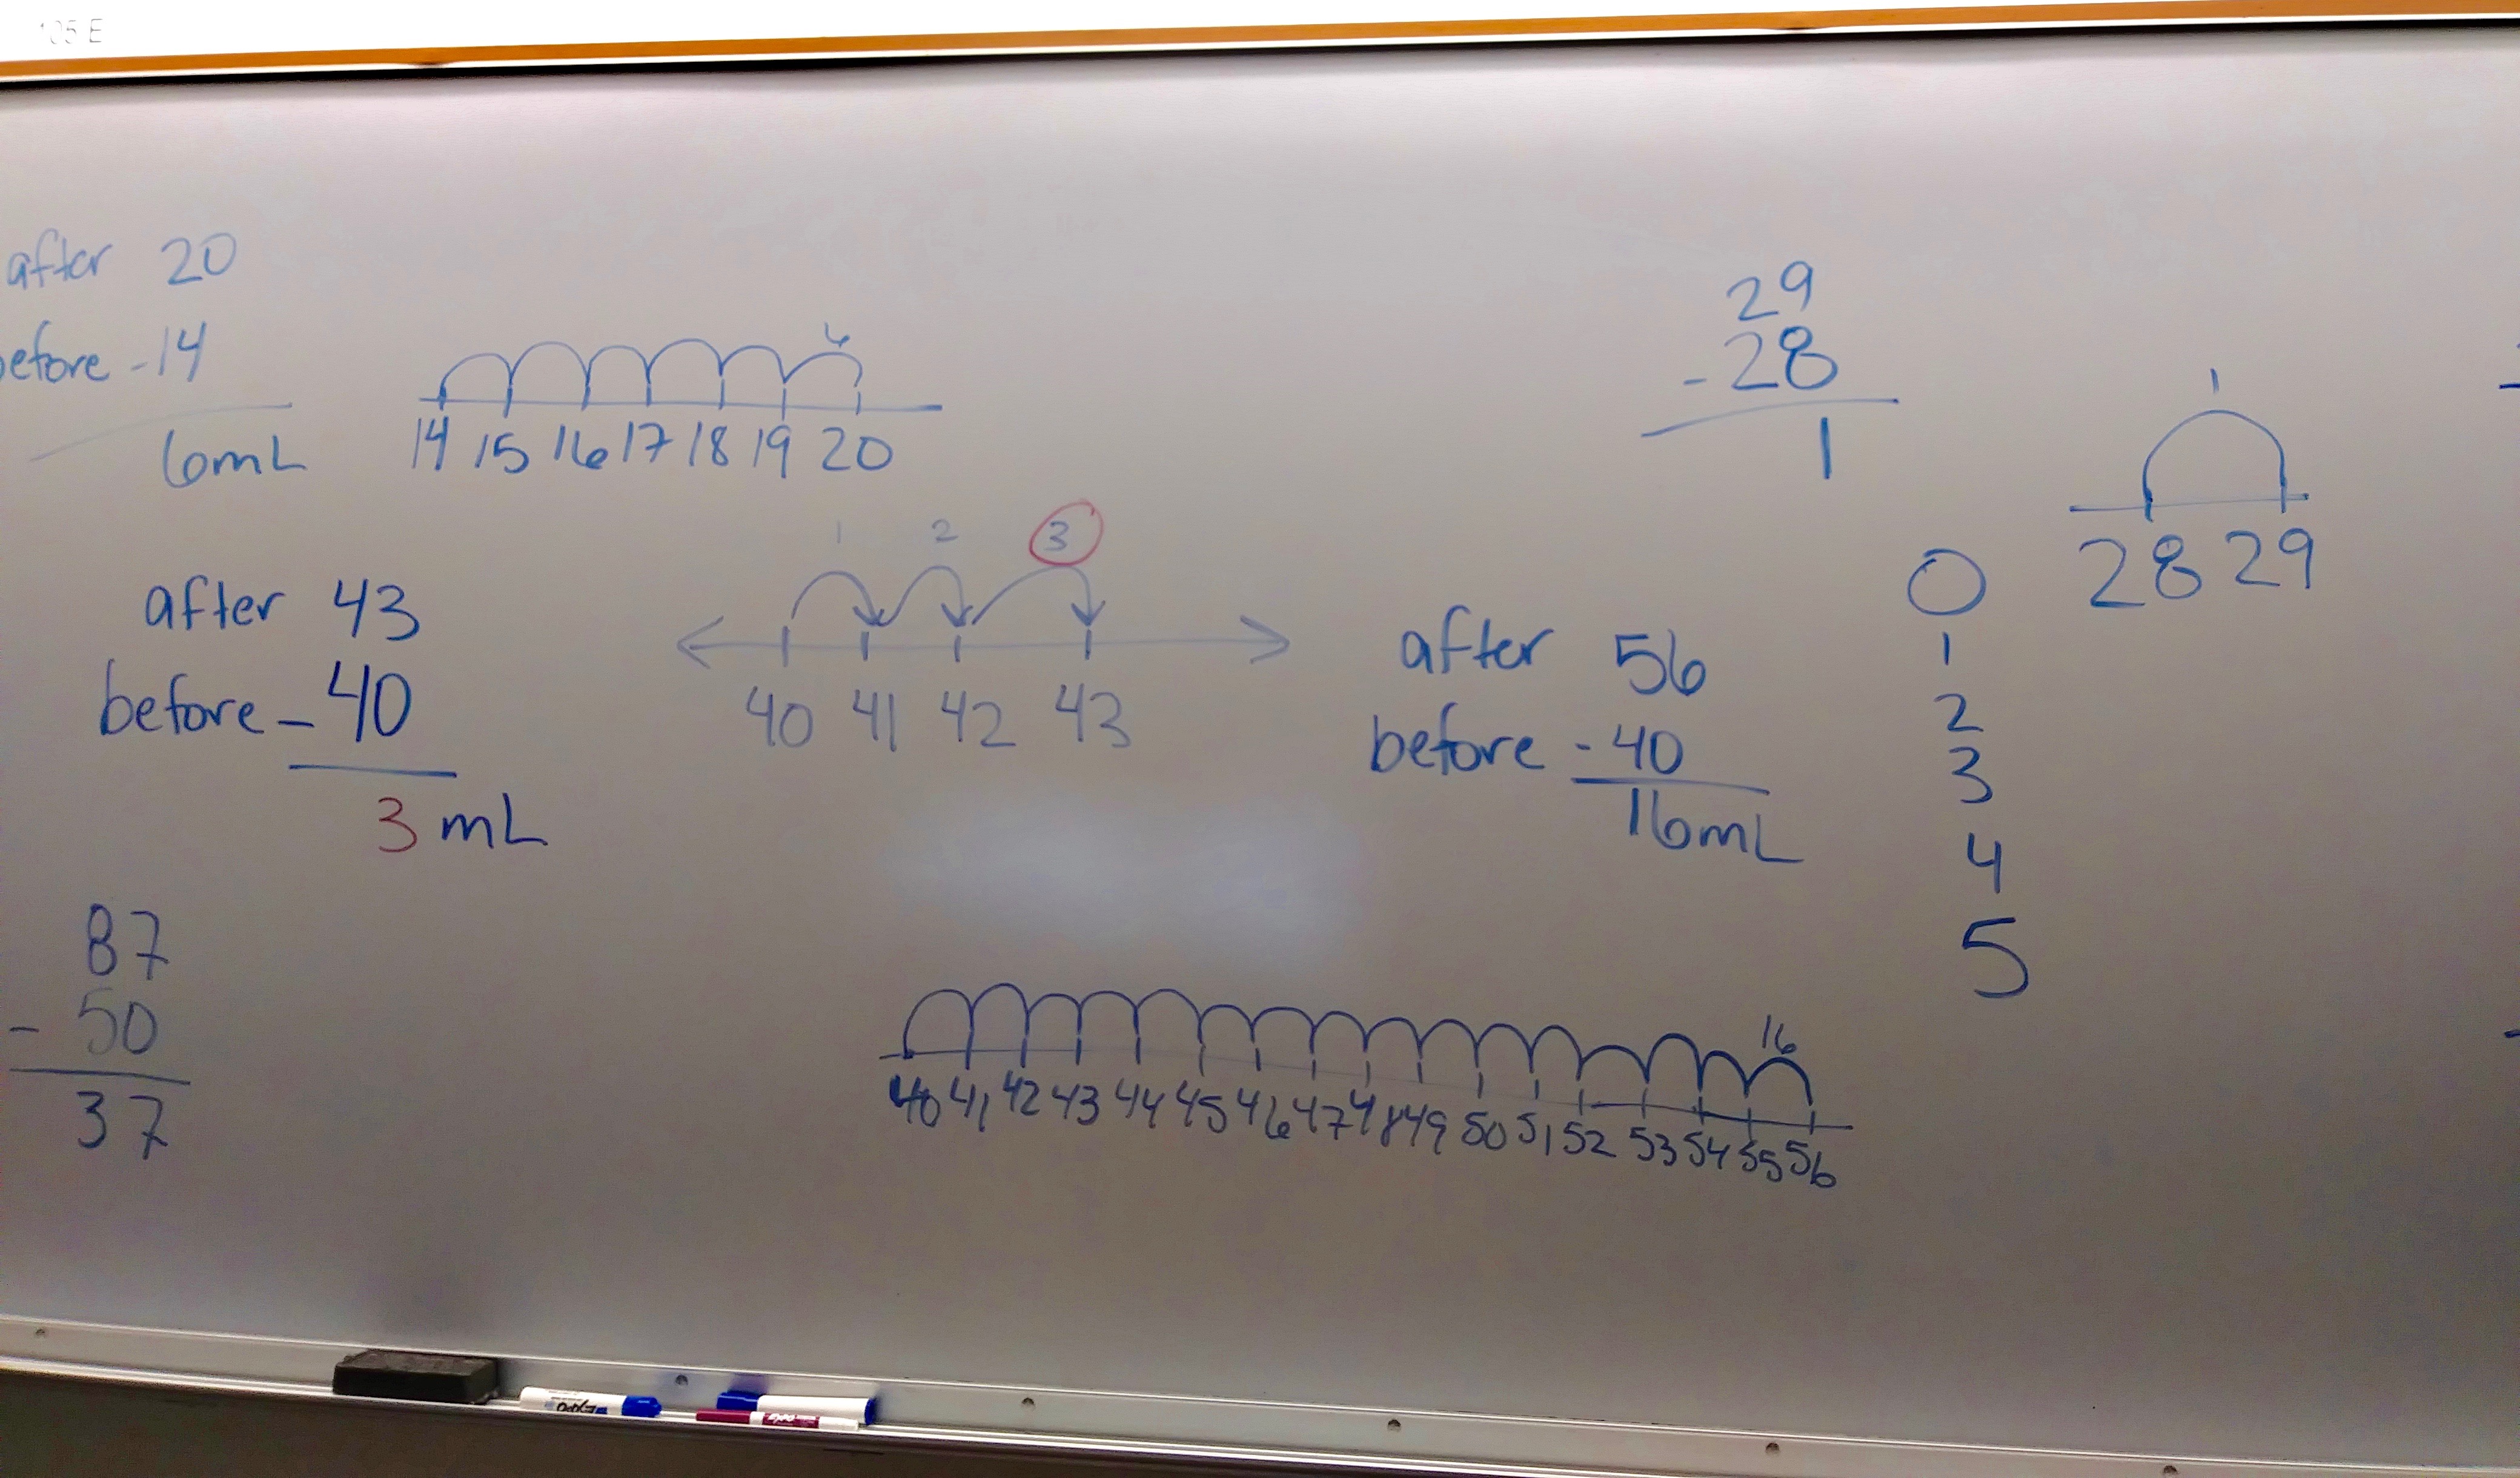 105 E
after 20
before - 14
6mL
6
14 15 16 17 18 19 20
29
- 28
1
1
28 29
1 2 3
40 41 42 43
after 43
before - 40
3 mL
after 56
before - 40
16mL
0
1
2
3
4
5
87
- 50
37
16
40 41 42 43 44 45 46 47 48 49 50 51 52 53 54 55 56
EXPO
EXPO